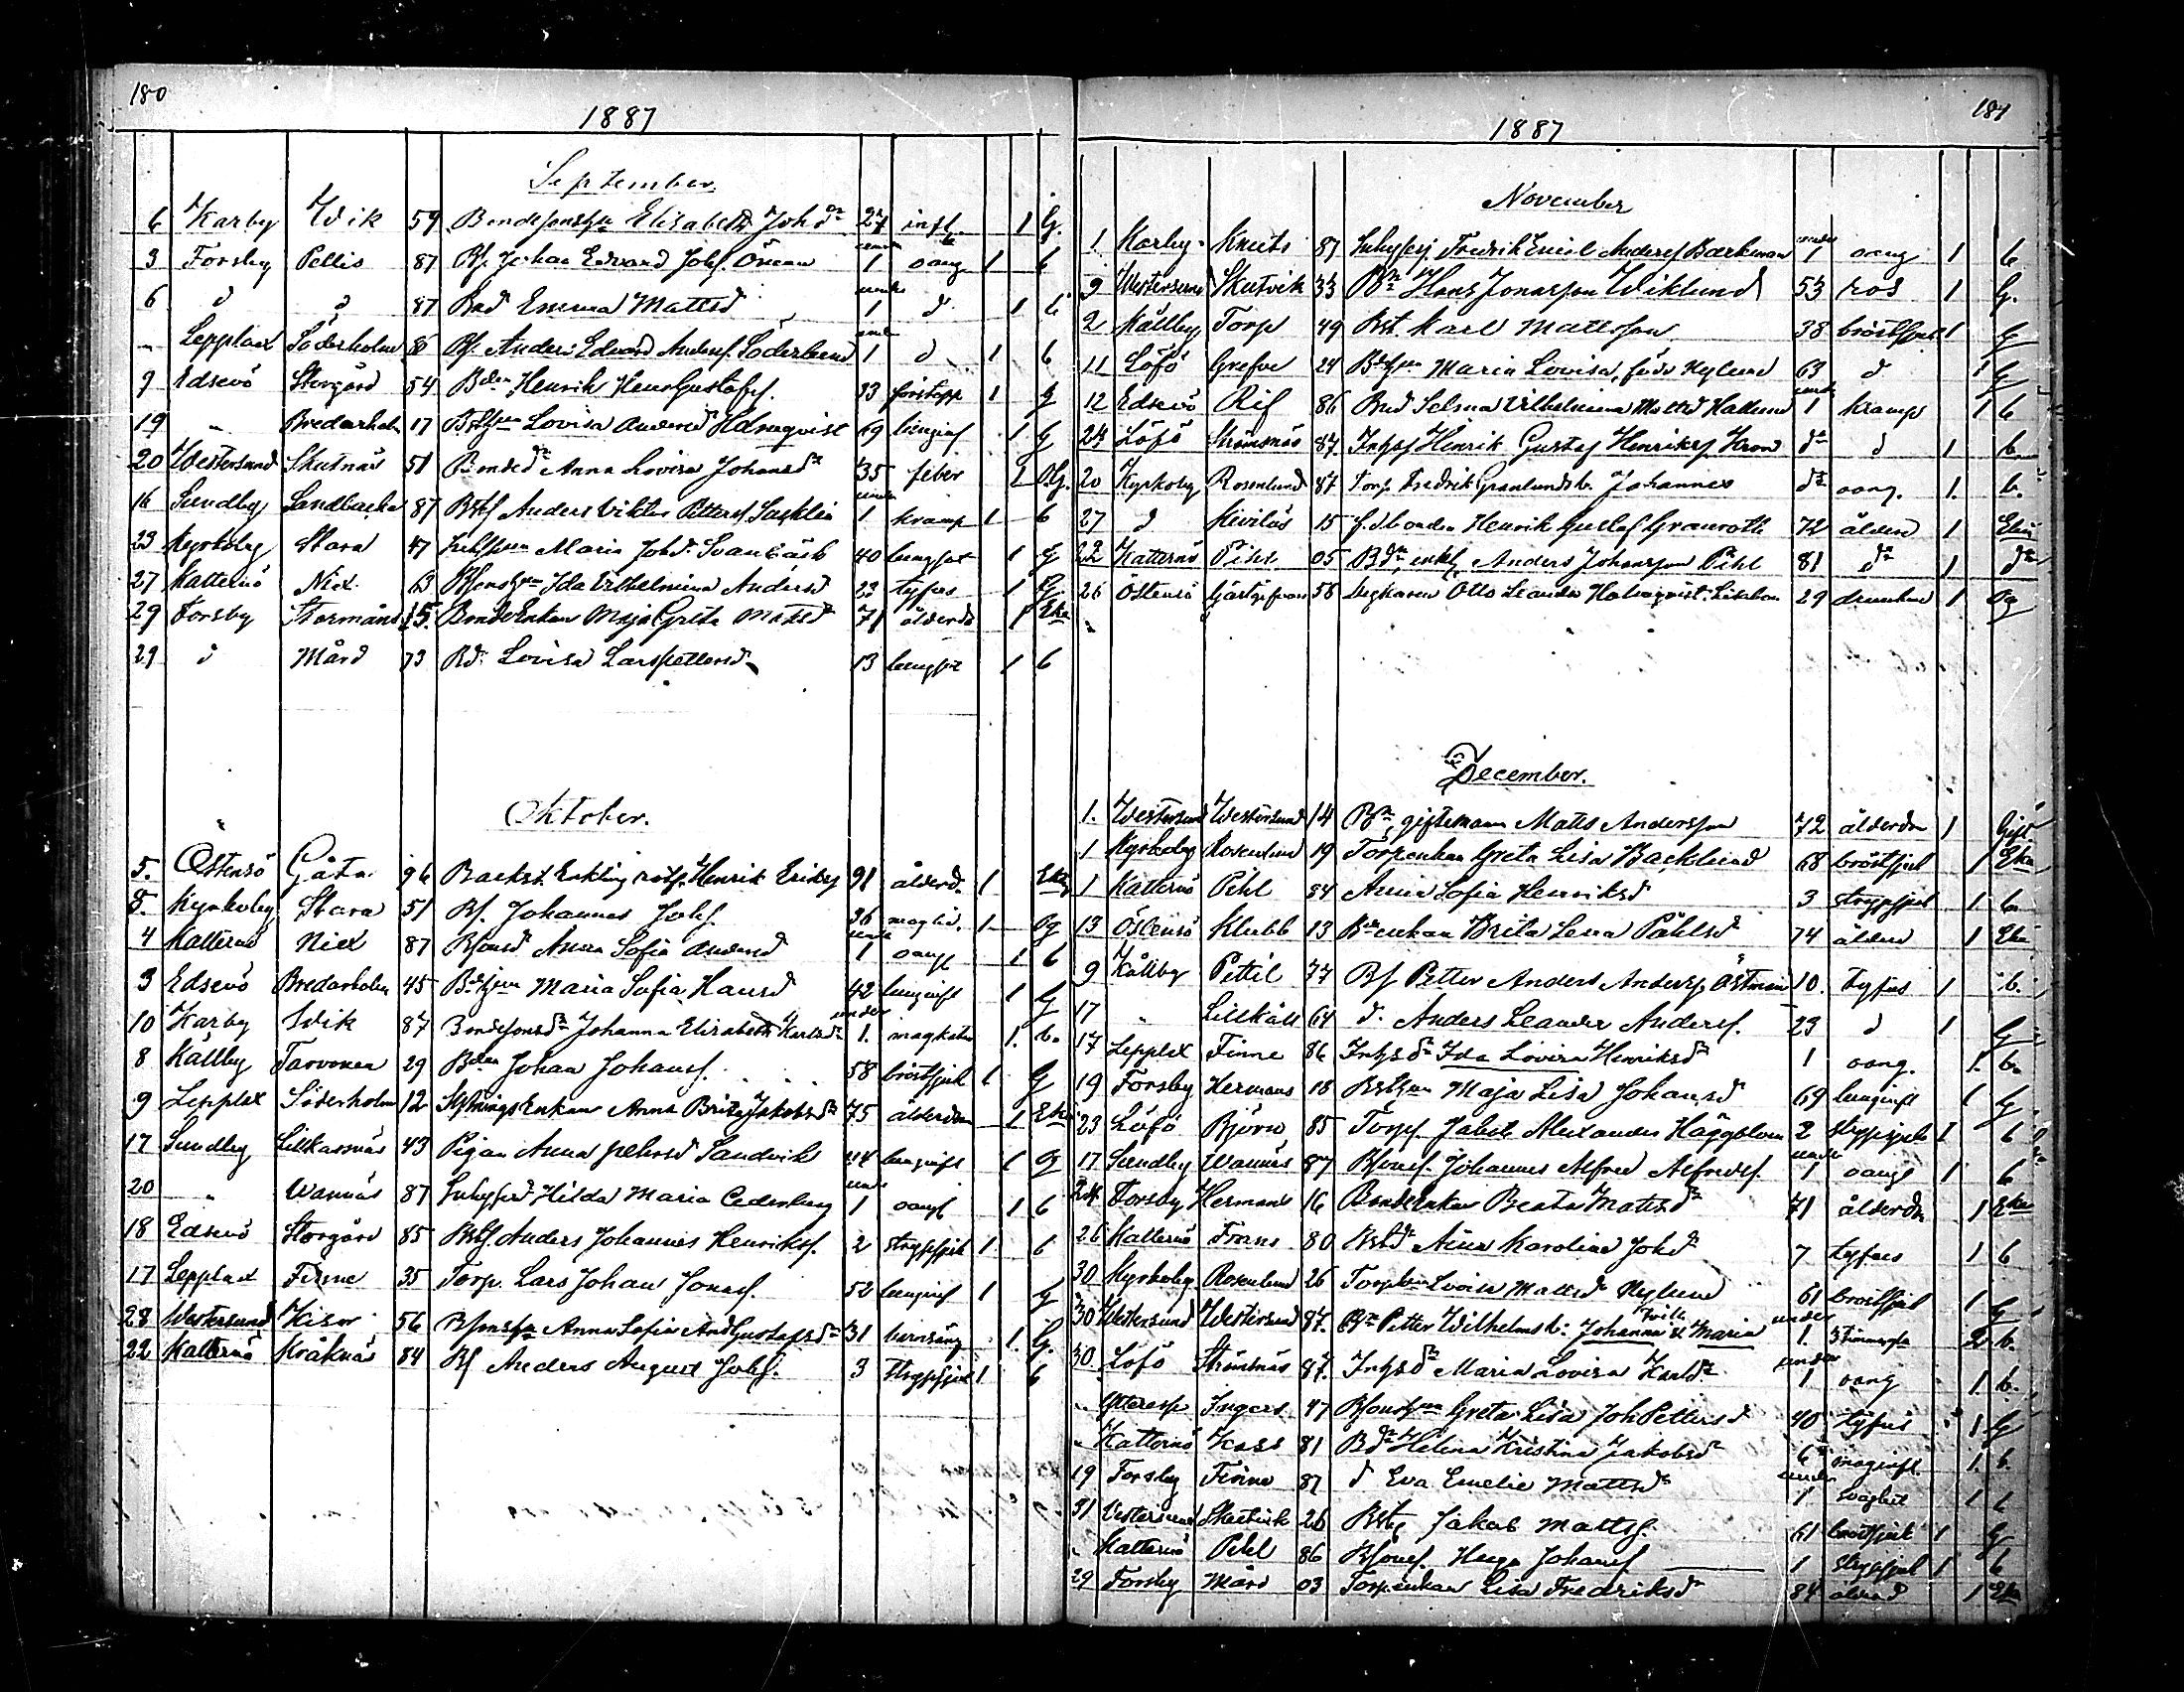 180
1887
September
6 Karby Wik 59 Bondesonshu Elisabeth Johdr 27 infl. 1 G.
3 Forsby Pellis 87 Bs. Johan Edvard Johs. Öman under 1 oang 1 b
6 d d 87 Bnd Emma Mattsd under 1 d 1 b
" Lepplax Söderholm 86 Bs. Anders Edvard Anders. Söderlund under 1 d 1 b
7 Edsevö Storgård 54 Bden Henrik HenrGustafs. 33 förstopp 1 G
19 " Bredarholm 17 Lovisa Andersd Holmqvist 69 lunginf 1 G
20 Westersund Skutnäs 51 Bondedr Anna Lovisa Johansdr 35 feber 1 Og.
16 Sundby Sandbacka 87 Bsts Anders Viktor Petters. under 1 kramp 1 b
23 Kyrkoby Stara 47 Maria Johd. Svanbäck 40 lungsot 1 g
27 Katternö Nix 63 Bsonshu Ida Vilhelmina Andersd 23 tyfus 1 G
29 Forsby Stormåns 15. BondeEnkan Maja Greta Mattsd 71 ålderd 1 Eka
29 d Mård 73 Bd. Lovisa Larspettersd 13 lungsot 1 b
Oktober.
5. Östensö Gåta 96 Backst. Enkling Henrik Eriks. 91 ålderd. 1 Ekg
5. Kyrkoby Stara 51 Bs. Johannes Johs. 36 1 Og
4 Katternö Nix 87 Bsonsd Anna Sofia Andersd under 1 oang 1 b
3 Edsevö Bredarholm 45 Maria Sofia Hansd 42 lunginfl 1 G
10 Karby Wik 87 Bondesonsdr Johanna Elisabeth Karlsdr under 1. magkatar 1. b.
8 Kållby Tarvonen 29 Bden Johan Johans. 58 bröstsjuk 1 G
9 Lepplax Söderholm 12 SytningsEnkan Anna Brita Jakobsdr 75 ålderdom 1 Eka
17 Sundby Lillkarsnäs 43 Pigan Anna Pehrsd Sandvik 44 lunginfl 1 Og
20 " Wannäs 87 Inhysesd Hilda Maria Cederberg under 1 oangf 1 b
18 Edsevö Storgård 85 Bsts. Anders Johannes Henriks. 2 strypsjuk 1 b
17 Lepplax Finne 35 Torp. Lars Johan Jonass. 52 lunginf 1 G
28 Westersund Kisor 56 Bsonshu Anna Sofia AndGustafsdr 31 barnsäng 1. G.
22 Katternö Kråknäs 84 Bs Anders August Johs. 3 Strypsjuk 1 b
181
1887
November
1. Karby Knuts 87 Fredrik Emil Anders. Backman under 1 oang 1 b
9 Westersund Skutvik 33 Bdn Hans Jonasson Wiklund 53 ros 1 G.
2 Kållby Torp 49 Bst. Karl Mattsson 38 bröstsjuk 1 G
11 Löfö Grefve 24 Maria Lovisa, född Nylund 63 d 1 G
12 Edsevö Rif 86 Bnd Selma Vilhelmina Mattsd Hallund under 1 kramp 1 b
24 Löfö Strömsnäs 87. Inhs. Henrik Gustaf Henriks. Kron dr d 1 b.
20 Kyrkoby Rosenlund 87 Torp. Fredrik Granlunds b. Johannes dr oang. 1. b.
27 d Kivilös 15 f.d. bonden Henrik Gustaf Granroth 72 ålderd 1 Ekg
22 Katternö Pihl 05 Bdn enkl. Anders Johansson Pihl 81 dr 1 dr
26 Östensö Gästgifvars 58 Otto Leander Holmqvist 29 drunknad 1 Og
December.
1. Westersund Westersund 14 Bn, giftemann Matts Andersson 72 ålderdom 1 Gift
1 Kyrkoby Rosenlund 19 Torpenkan Greta Lisa Backlund 68 bröstsjuk 1 Eka
1 Katternö Pihl 84 Anna Sofia Henriksd 3 strypsjuk 1. b.
13 Östensö Klubb 13 Bdenkan Brita Lena Påhlsd 74 ålderd 1 Eka
9 Kållby Pettil 77 Bs Petter Anders Anders. Östman 10. tyfus 1 b.
17 " Lillkåll 64 d. Anders Leander Anders. 23 d 1 G
17 Lepplax Finne 86 Inhsdr Ida Lovisa Henriksdr 1 oang. 1. b.
19 Forsby Hermans 18 Maja Lisa Johansd 69 lunginfl 1 G.
23 Löfö Björn 85 Torps. Jakob Alexander Häggblom 2 strypsjuk 1 b
17 Sundby Wannäs 87 Bsons. Johannes Alfred Alfreds. under 1 oangf 1 b
24 Forsby Hermans 16 BondeEnkan Beata Mattsdr 71 ålderdr 1 Eka
26 Katternö Frans 80 Bstdr Anna Karolina Johdr 7 tyfus 1 b
30 Kyrkoby Rosenlund 26 Lovisa Mattsdr Nylund 61 bröstsjuk 1 G
30 Westersund Westersund 87. Bn Petter Wilhelms b: Johanna & Maria tvill. under 1. 2 b.
30. Löfö Strömsnäs 87. Inhsdr Maria Lovisa Karlsdr under 1 oang 1. b.
" Ytteresse Ingers 47 Bsonshu Greta Lisa JohPettersd 40 tyfus 1 G
" Katternö Kass 81 Bdr Helena Kristina Jakobsdr 6 maginfl. 1. b
19 Forsby Finne 87 d Eva Emelie Mattsdr under 1 svaghet 1 b
31 Vestersund Skutvik 26 Bstg Jakob Mattss. 61 bröstsjuk 1 G
" Katternö Pihl 86 Bsons. Hugo Johans. 1 strypsjuk 1 b
29 Forsby Mård 03 Torpenkan Lisa Fredriksdr 84 ålderd 1 Eka